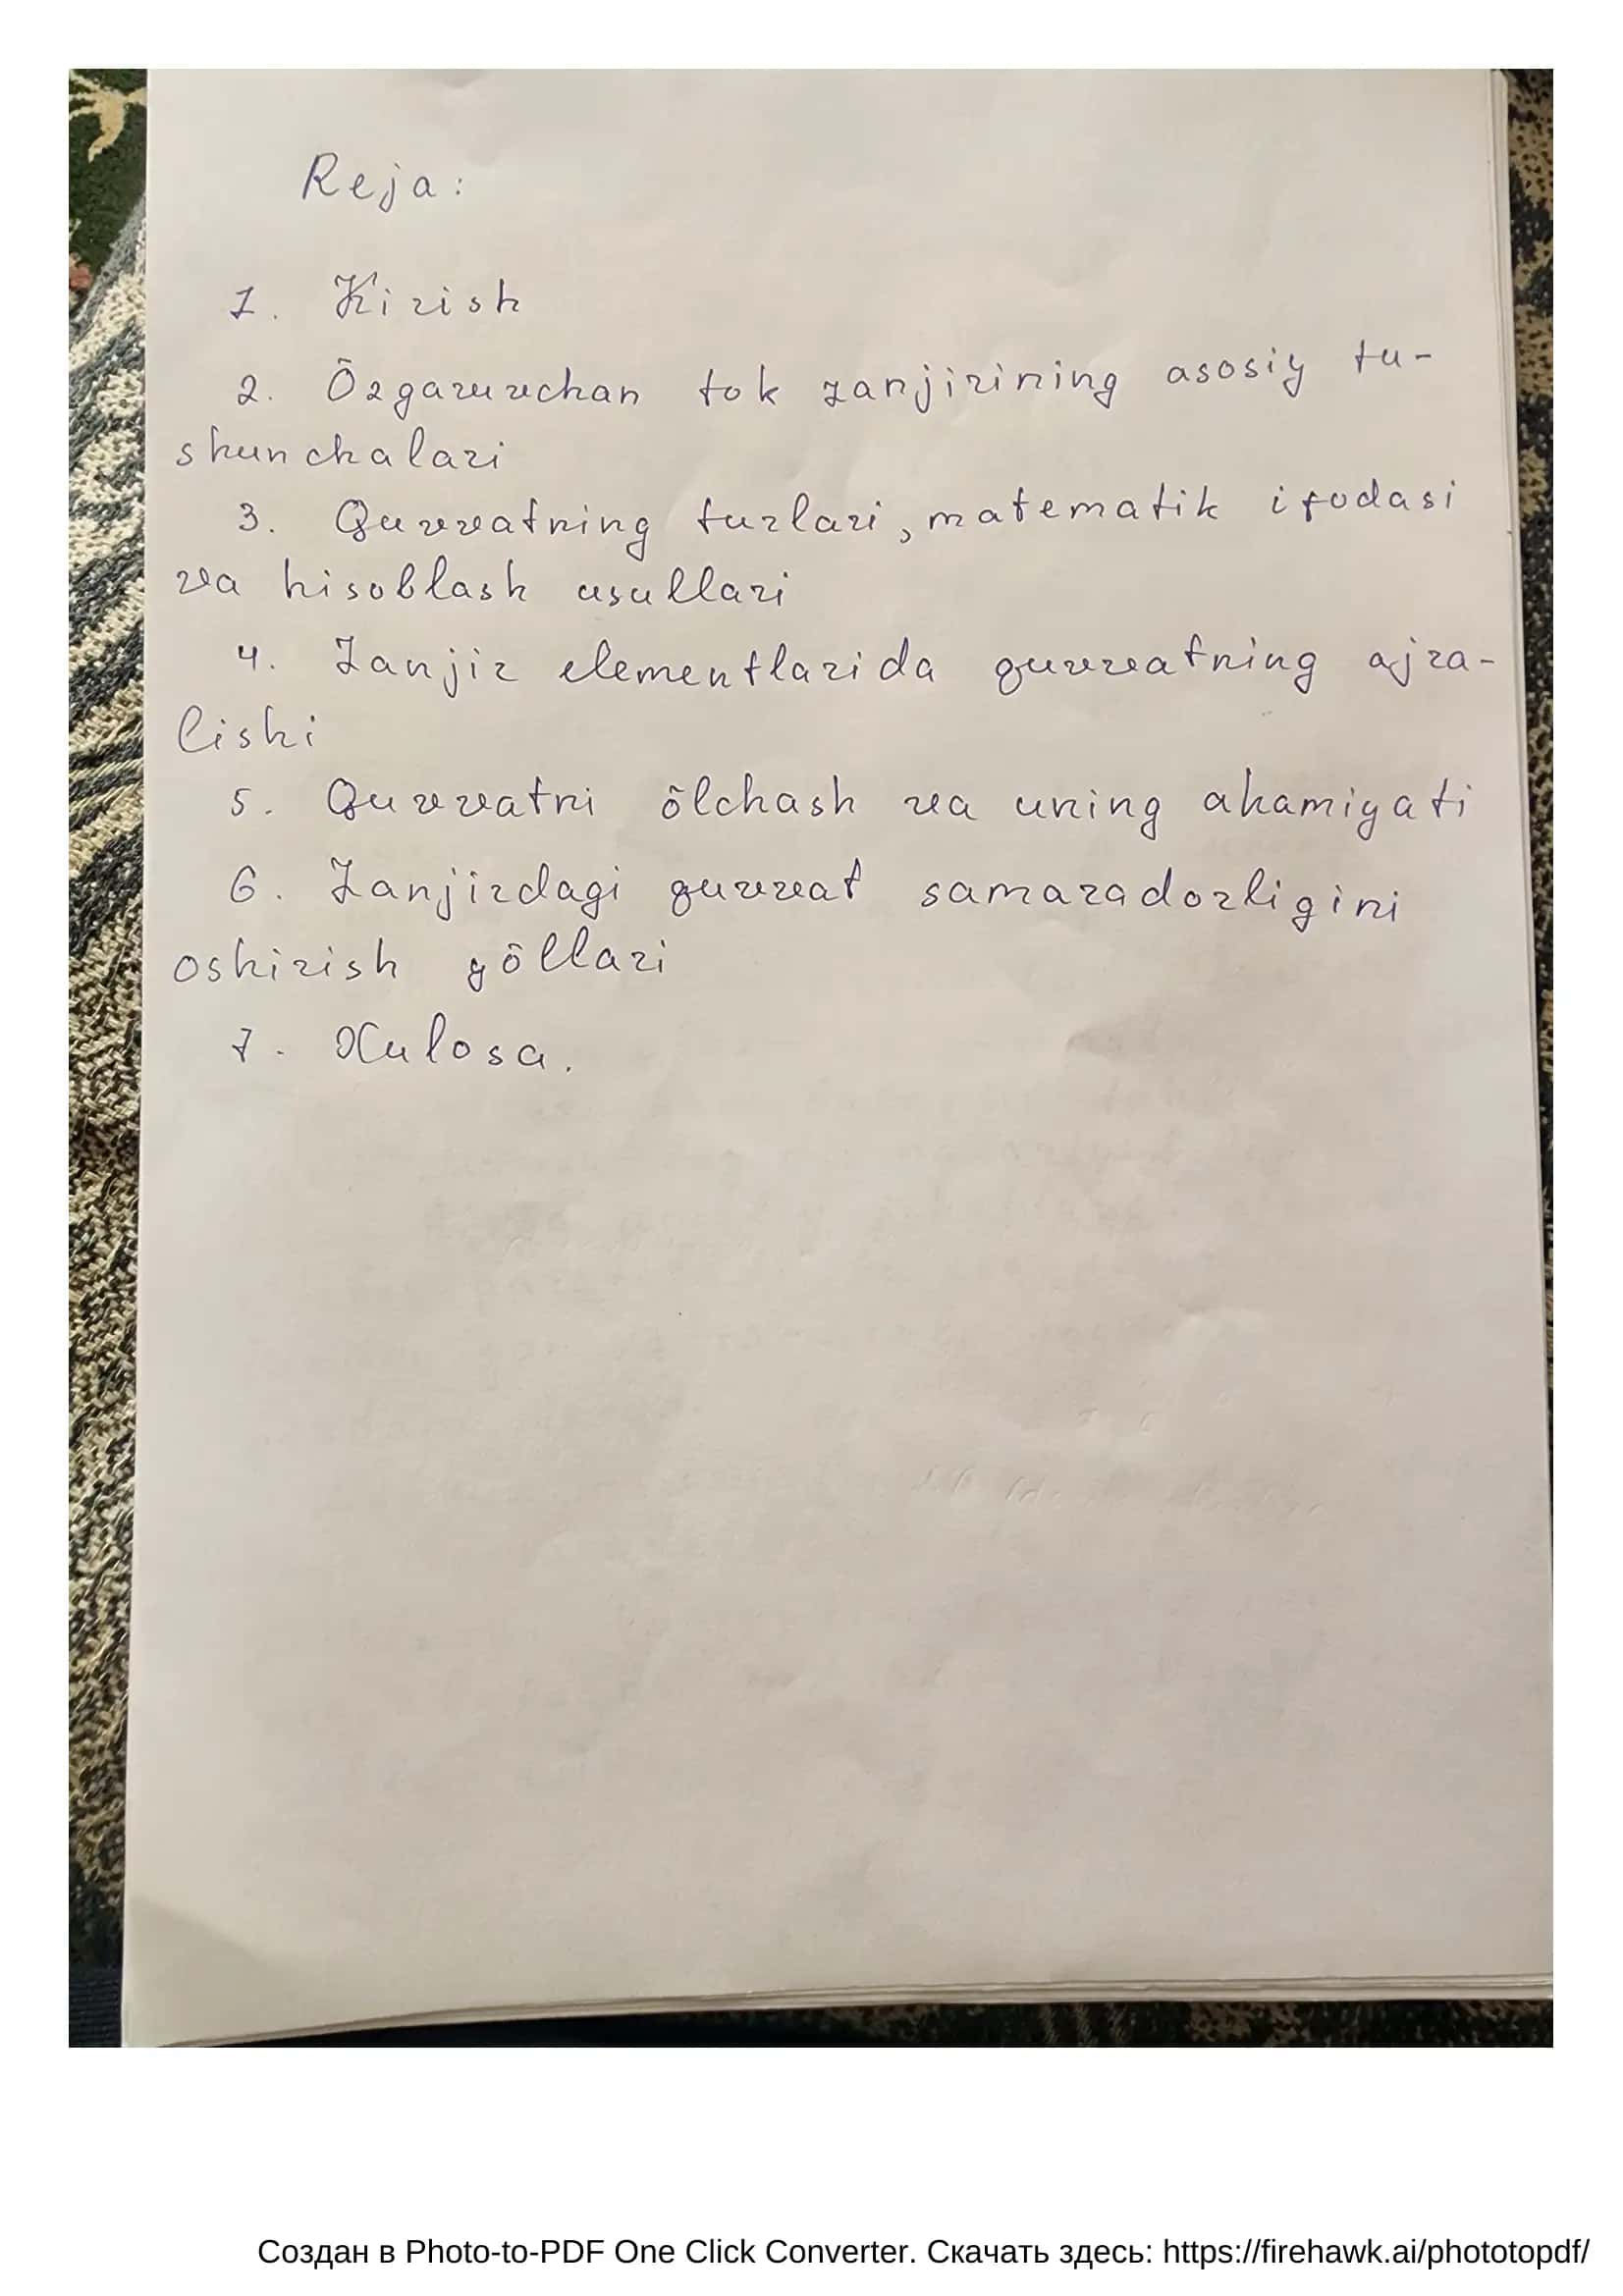 Reja:
1. Kirish
2. Õzgaruvchan tok zanjirining asosiy tu-
shunchalari
3. Quvvatning turlari, matematik ifodasi
va hisoblash usullari
4. Zanjir elementlarida quvvatning ajra-
lishi
5. Quvvatni õlchash va uning ahamiyati
6. Zanjirdagi quvvat samaradorligini
oshirish yõllari
7. Xulosa.
Создан в Photo-to-PDF One Click Converter. Скачать здесь: https://firehawk.ai/phototopdf/